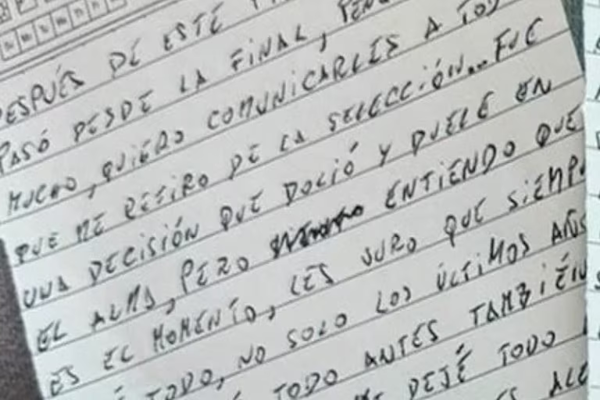 DESPUÉS DE ESTE
PASÓ DESDE LA FINAL,
MUCHO, QUIERO COMUNICARLES A TOD
QUE ME RETIRO DE LA SELECCIÓN... FUE
UNA DECISIÓN QUE DOLIÓ Y DUELE EN
EL ALMA, PERO ENTIENDO QUE
ES EL MOMENTO, LES JURO QUE SIEMPR
TODO, NO SOLO LOS ÚLTIMOS AÑOS
TODO ANTES TAMBIÉN
DEJÉ TODO